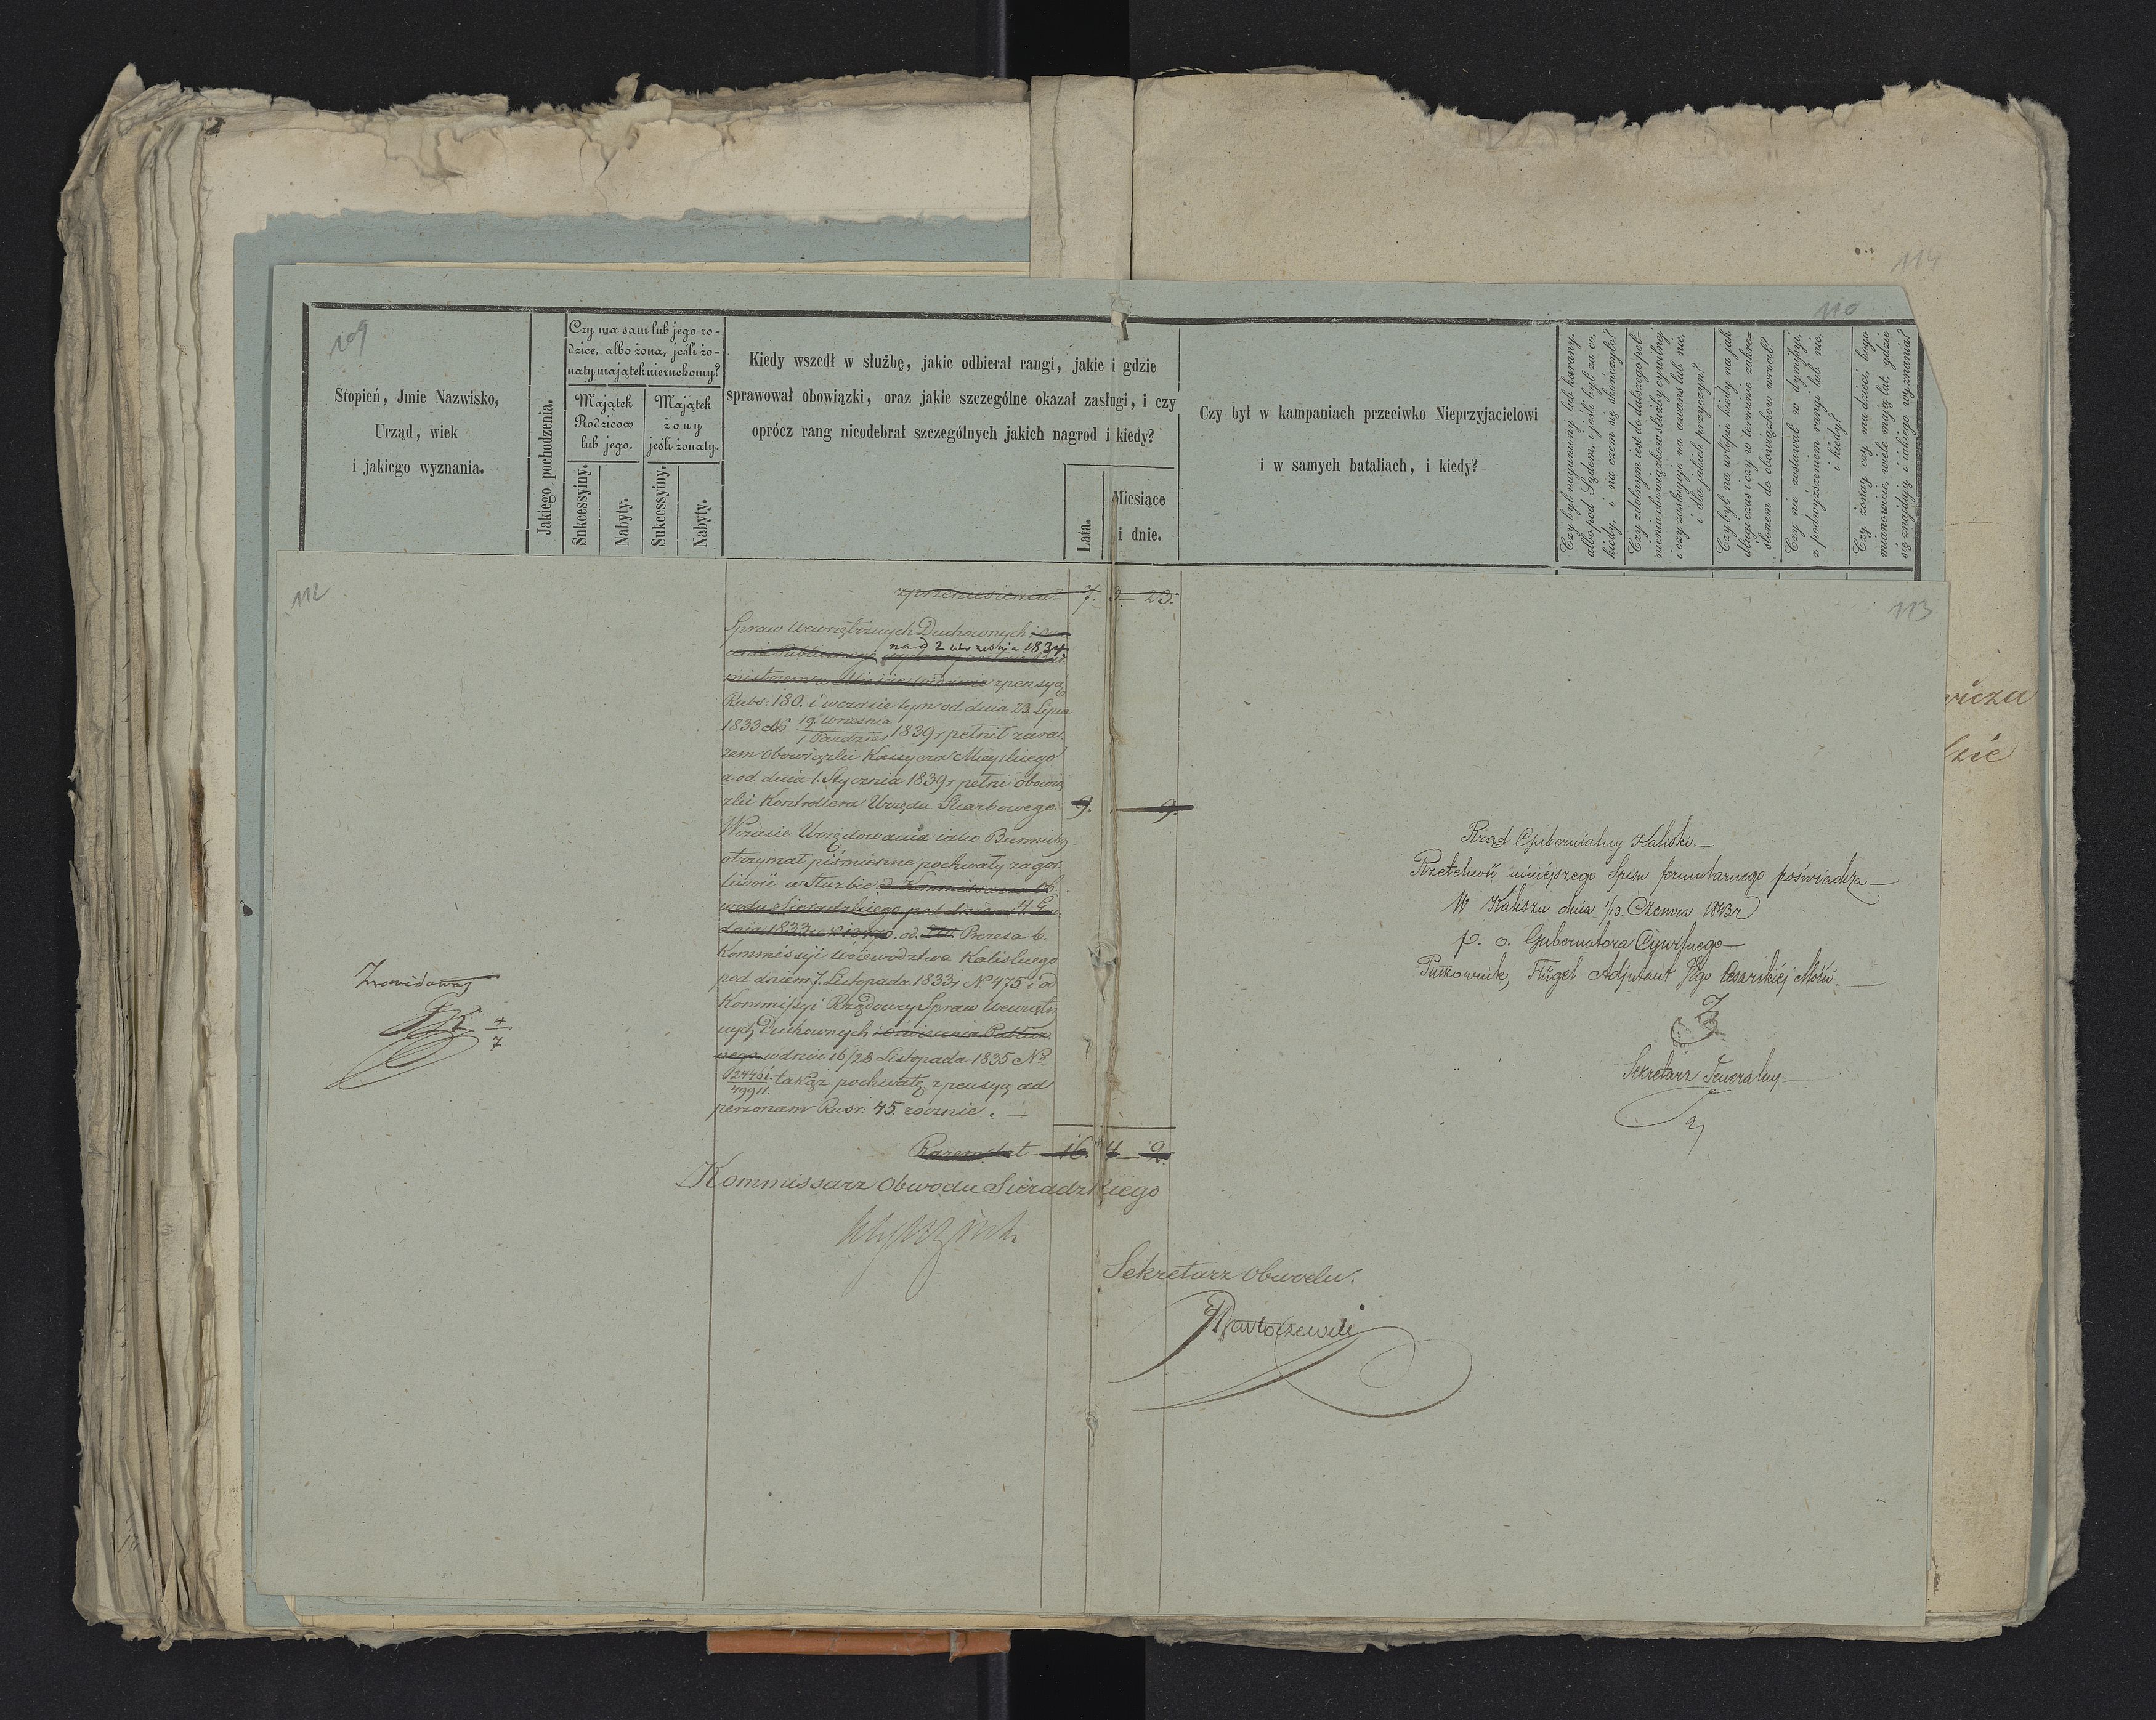 109
110
114
Stopień, Jmie Nazwisko,
Urząd, wiek
i jakiego wyznania.
Jakiego pochodzenia.
Czy ma sam lub jego ro-
dzice, albo żona, jeśli żo-
naty majątek nieruchomy?
Majątek
Rodziców
lub jego.
Majątek
żony
jeśli żonaty.
Sukcessyiny.
Nabyty.
Sukcessyiny.
Nabyty.
Kiedy wszedł w służbę, jakie odbierał rangi, jakie i gdzie
sprawował obowiązki, oraz jakie szczególne okazał zasługi, i czy
oprócz rang nieodebrał szczególnych jakich nagrod i kiedy?
Lata.
Miesiące
i dnie.
Czy był w kampaniach przeciwko Nieprzyjacielowi
i w samych bataliach, i kiedy?
Czy był naganiony lub karany,
albo pod Sądem, i jeśli był za co,
kiedy, i na czem się skończyło?
Czy zdolnym iest do dalszego peł-
nienia obowiązków służby cywilnej
i czy zasługuje na awans lub nie,
i dla jakich przyczyn?
Czy był na urlopie kiedy na jak
długi czas i czy w terminie zakre-
ślonem do obowiązków wrócił?
Czy nie zostawał w dymissyi,
z podwyższeniem rangi lub nie
i kiedy?
Czy żonaty, czy ma dzieci, kogo
mianowicie, wiele mają lat, gdzie
się znajdują i iakiego wyznania?
112
113
zprzeniesienia 7. 3 23.
Spraw Wewnętrznych Duchownych i
cenia Publicznego na d 2 Września 1834
z pensyą
Rubs: 180. i wczasie tym od dnia 23. Lipca
1833 do 19 Września / 1 Paździer 1839 r pełnił zara-
zem obowiązki Kassyera Mieyskiego
a od dnia 1. Stycznia 1839 r pełni obowią
zki Kontrollera Urzędu Skarbowego. 9. — 9.
Wczasie Urzędowania iako Burmistrz
otrzymał piśmienne pochwały za gor
liwość w służbie od Kommissarza Ob-
wodu Sieradzkiego pod dniem 4 Gru
dnia 1833 r od Prezesa b.
Kommissyi Woiewodztwa Kaliskiego
pod dniem 7. Listopada 1833 r No 475 i od
Kommissyi Rządowey Spraw Wewnętrz
nych Duchownych i Oświecenia Publicz
nego w dniu 16/28 Listopada 1835 No
12446 / 49911. takąż pochwałę z pensyą ad
personam Rusr: 45. rocznie. —
Razem lat 16. 4 2.
Kommissarz Obwodu Sieradzkiego
Sekretarz Obwodu.
Bartoszewski
Zrewidował
4
7
Rząd Gubernialny Kaliski
Rzetelność niniejszego Spisu formularnego poświadcza
W Kaliszu dnia 1/13. Czerwca 1843 r
p. o. Gubernatora Cywilnego
Pułkownik, Flügel Adjutant Jego Cesarskiej Mości
Sekretarz Jeneralny
wicza